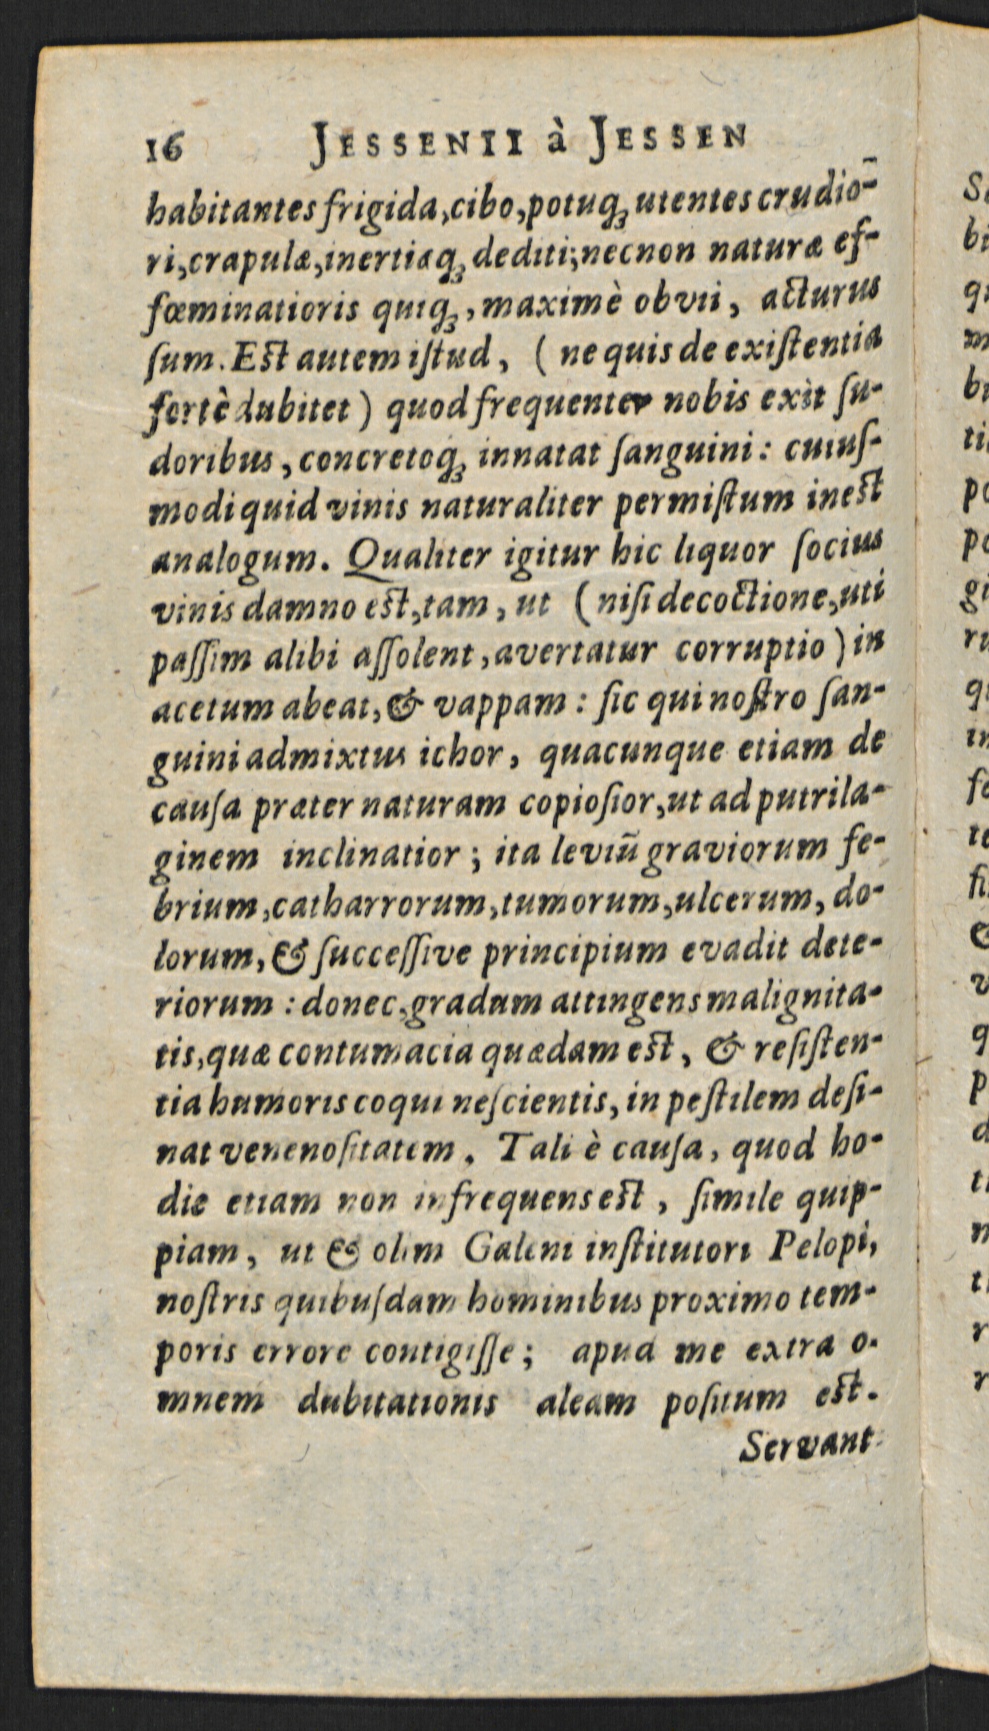 16 JESSENII à JESSEN
habitantes frigida, cibo, potuq́ꝫ utentes crudio-
ri, crapulæ, inertiæq́ꝫ dediti; necnon naturæ ef-
fœminatioris quiq́ꝫ, maximè obvii, acturus
ſum. Eſt autem iſtud, (ne quis de exiſtentia
fortè dubitet) quod frequenter nobis exit ſu-
doribus, concretoq́ꝫ innatat ſanguini: cuiuſ-
modi quid vinis naturaliter permiſtum ineſt
analogum. Qualiter igitur hic liquor ſocius
vinis damno eſt, tam, ut (niſi decoctione, uti
paſſim alibi aſſolent, avertatur corruptio) in
acetum abeat, & vappam: ſic qui noſtro ſan-
guini admixtus ichor, quacunque etiam de
cauſa præter naturam copioſior, ut ad putrila-
ginem inclinatior; ita leviū graviorum fe-
brium, catharrorum, tumorum, ulcerum, do-
lorum, & ſucceſſive principium evadit dete-
riorum: donec, gradum attingens malignita-
tis, quæ contumacia quædam eſt, & reſiſten-
tia humoris coqui neſcientis, in peſtilem deſi-
nat venenoſitatem. Tali è cauſa, quod ho-
die etiam non infrequens eſt, ſimile quip-
piam, ut & olim Galeni inſtitutori Pelopi,
noſtris quibuſdam hominibus proximo tem-
poris errore contigiſſe; apud me extra o-
mnem dubitationis aleam poſitum eſt.
Servant